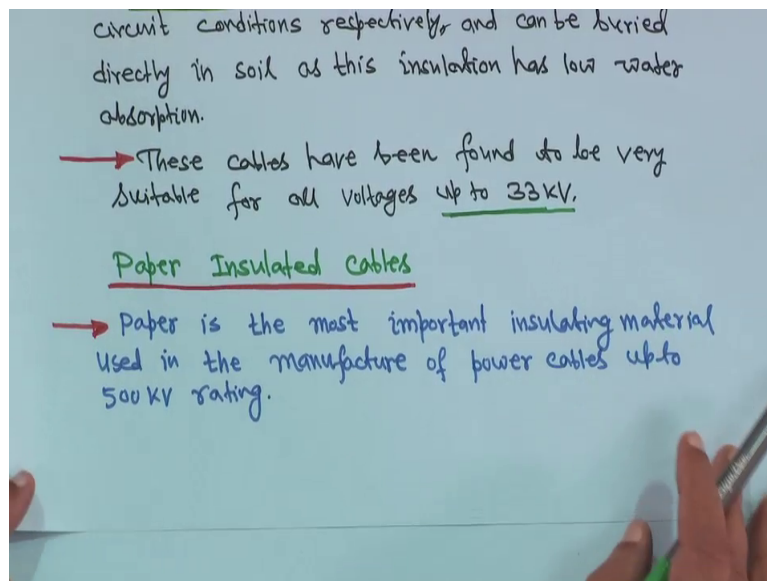 circuit conditions respectively, and can be buried
directly in soil as this insulation has low water
absorption.
These cables have been found to be very
suitable for all voltages up to 33 KV.
Paper Insulated Cables
Paper is the most important insulating material
used in the manufacture of power cables up to
500 KV rating.